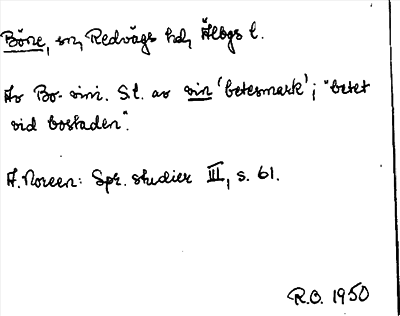 Böne, sn, Redvägs hd, Älvbgs l.
Av Bo- vini. St. av vin 'betesmark'; "betet
vid bostaden".
A. Noreen: Spr. studier III, s. 61.
R.O. 1950